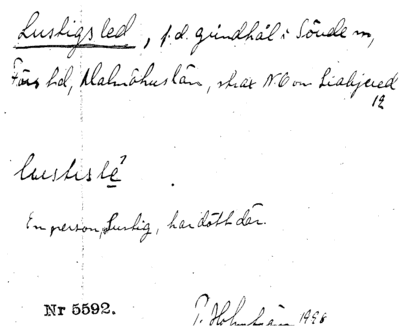 Lustigsled, f.d. grindhål i Sövde sn,
Färs hd, Malmöhus län, strax N.O om Liabjered
12
lustislé
En person, Lustig, har dött där.
Nr 5592.
1928